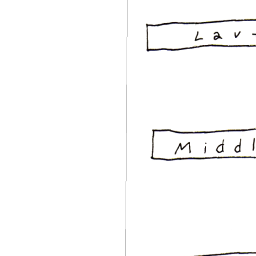 Lav
Middl